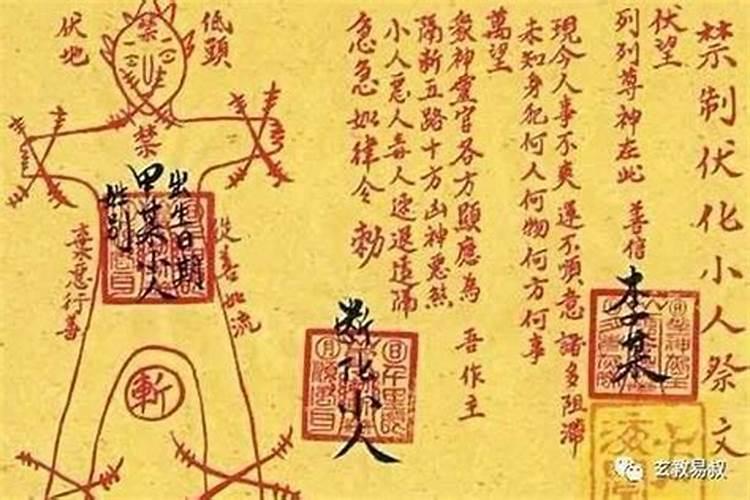 禁制伏化小人祭文
伏望
列列尊神在此 善信
李某
現今人事不爽運不順意諸多阻滯
未知身犯何人何物何方何事
萬望
眾神靈官各方顯應為 吾作主
隔斷五路十方凶神惡煞
小人惡人毒人速退遠隔
急急如律令 勅
断化小人
低頭
禁
伏地
禁
出生日期
甲某小人
姓別
從善如流
棄惡行善
斬
玄教易叔